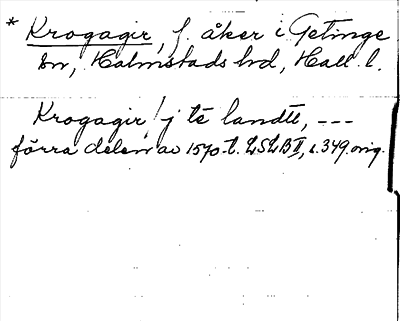 * Krogagir, f. åker i Getinge
sn, Halmstads hd, Hall. l.
Krogagir, j té landtt, ---
förra delen av 1570-t. LSLB II, s. 349. orig.